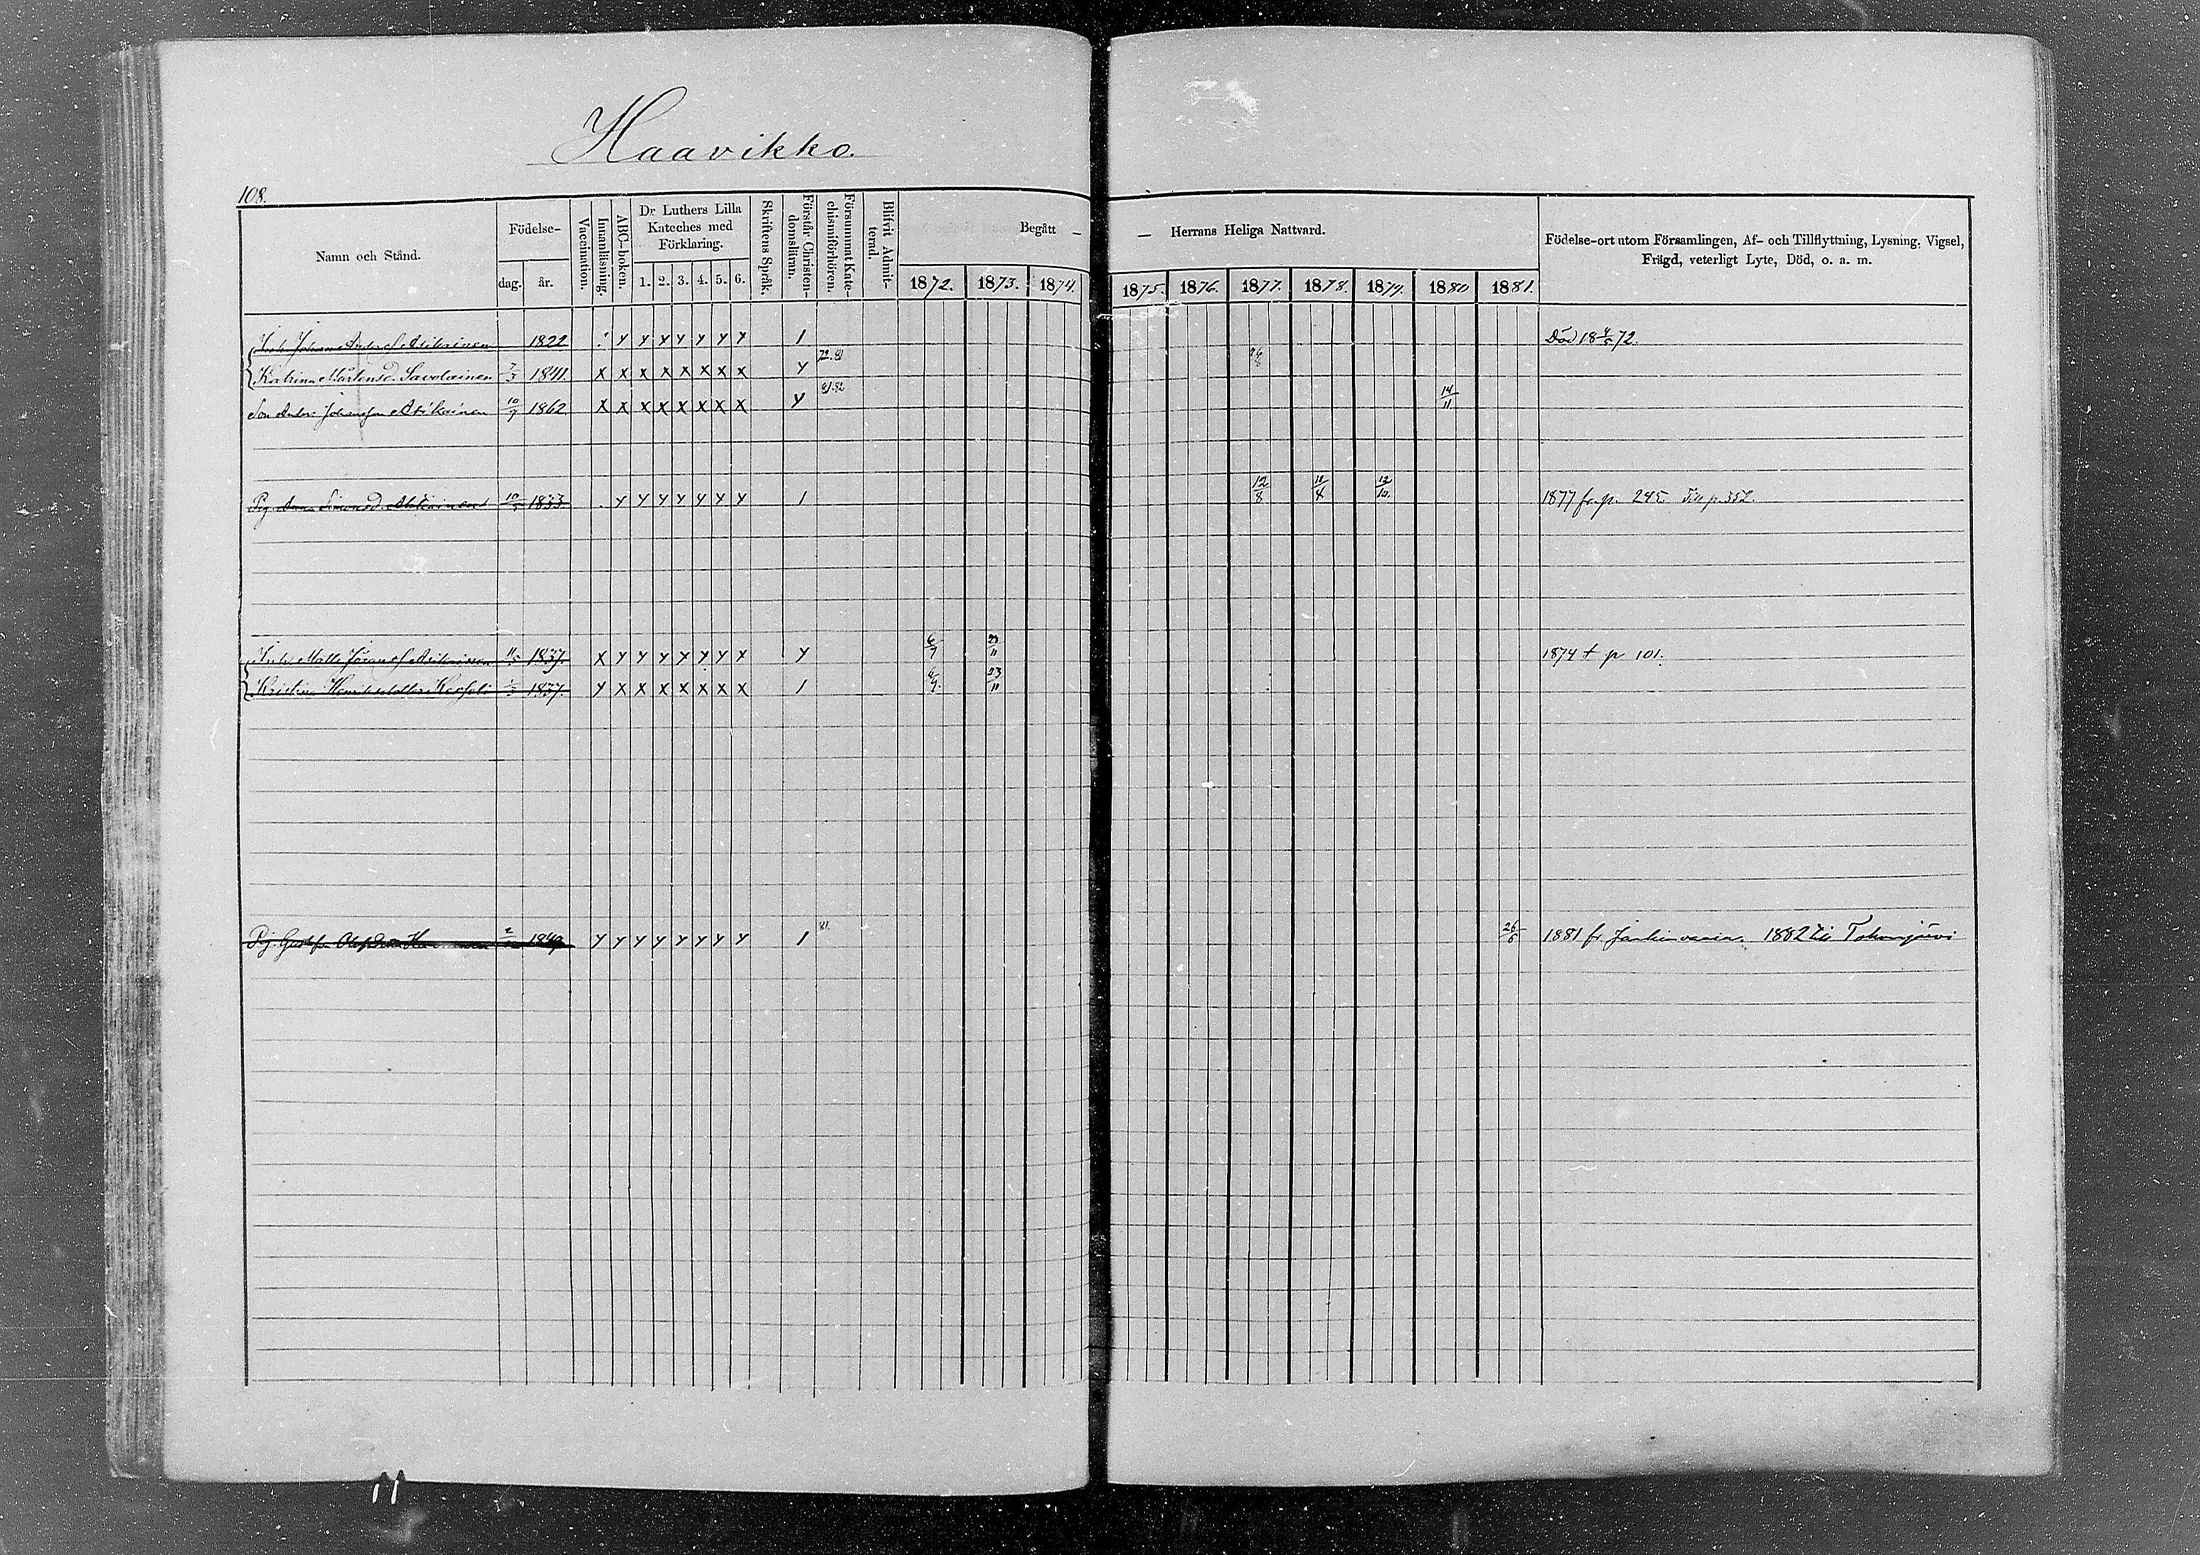 Haavikko.
108.
Namn och Stånd.
Födelse-
dag. år.
Vaccination.
Innanläsning.
ABC-boken.
Dr Luthers Lilla Kateches med Förklaring.
1. 2. 3. 4. 5. 6.
Skriftens Språk.
Förstår Christendomsläran.
Försummat Katechismiförhören.
Blifvit Admitterad.
Begått —
— Herrans Heliga Nattvard.
1872. 1873. 1874. 1875. 1876. 1877. 1878. 1879. 1880 1881.
Födelse-ort utom Församlingen, Af- och Tillflyttning, Lysning, Vigsel,
Frägd, veterligt Lyte, Död, o. a. m.
Johan Andersf Asikainen 1822 y y y y y y y 1 Död 18 4/5 72.
Katrina Mårtensd. Savolainen 7/3 1841. x x x x x x x x y 72.81
Son Anders Johansson Asikainen 10/7 1862 x x x x x x x x y 81.82 14/11
Pig. Anna Simonsd. 1833 y y y y y y y 1 12/8 12/10 1877 fr. p. 245. Till p. 352.
Matts Asikainen 1837. x y y y y y y x y 6/7 23/11 1874 t p 101.
Kristina 1837. y x x x x x x x 1 23/11
Pig. 1849 y y y y y y y y 1 81. 26/6 1881 fr. 1882 till